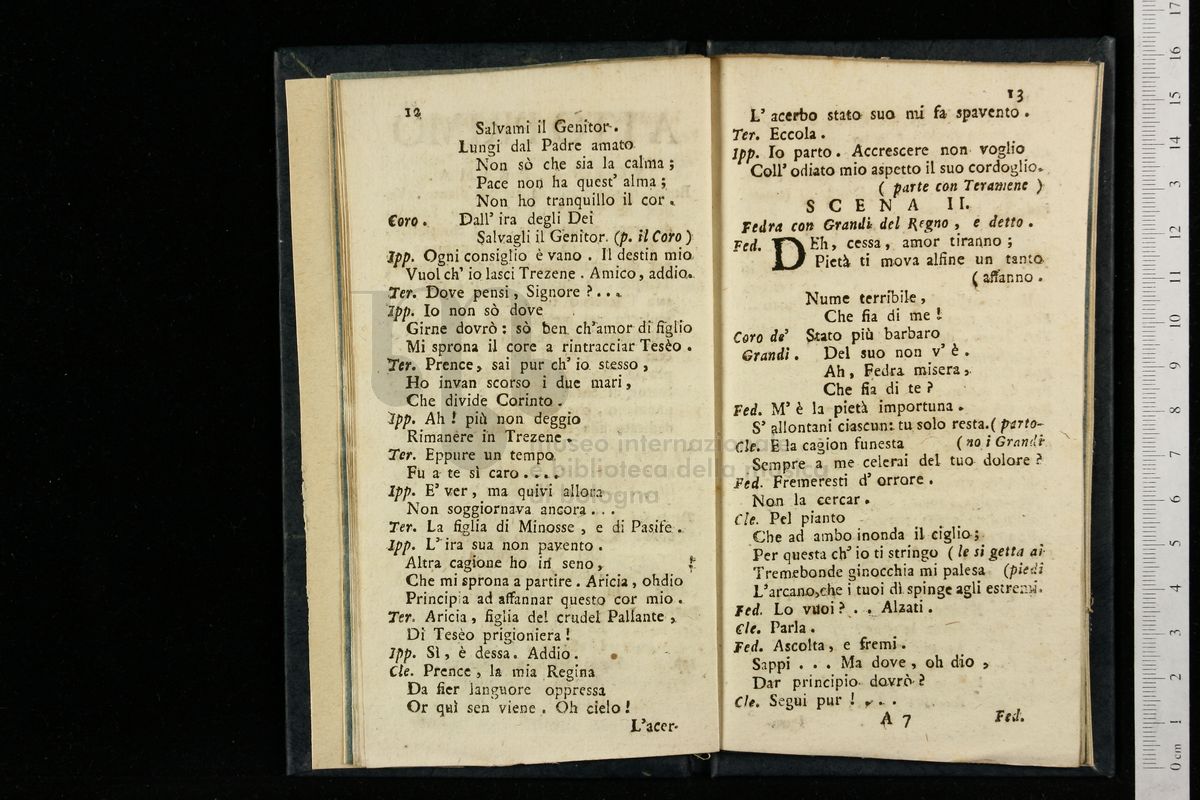 12
Salvami il Genitor.
Lungi dal Padre amato
Non sò che sia la calma;
Pace non ha quest' alma;
Non ho tranquillo il cor.
Coro. Dall' ira degli Dei
Salvagli il Genitor. (p. il Coro)
Ipp. Ogni consiglio è vano. Il destin mio
Vuol ch' io lasci Trezene. Amico, addio.
Ter. Dove pensi, Signore?...
Ipp. Io non sò dove
Girne dovrò: sò ben ch'amor di figlio
Mi sprona il core a rintracciar Tesèo.
Ter. Prence, sai pur ch' io stesso,
Ho invan scorso i due mari,
Che divide Corinto.
Ipp. Ah! più non deggio
Rimanere in Trezene.
Ter. Eppure un tempo
Fu a te sì caro....
Ipp. E' ver, ma quivi allora
Non soggiornava ancora...
Ter. La figlia di Minosse, e di Pasife.
Ipp. L' ira sua non pavento.
Altra cagione ho in seno,
Che mi sprona a partire. Aricia, ohdio
Principia ad affannar questo cor mio.
Ter. Aricia, figlia del crudel Pallante,
Di Tesèo prigioniera!
Ipp. Sì, è dessa. Addio.
Cle. Prence, la mia Regina
Da fier languore oppressa
Or quì sen viene. Oh cielo!
L'acer-
13
L' acerbo stato suo mi fa spavento.
Ter. Eccola.
Ipp. Io parto. Accrescere non voglio
Coll' odiato mio aspetto il suo cordoglio.
(parte con Teramene)
SCENA II.
Fedra con Grandi del Regno, e detto.
Fed. DEh, cessa, amor tiranno;
Pietà ti mova alfine un tanto
(affanno.
Nume terribile,
Che fia di me!
Coro de' Stato più barbaro
Grandi. Del suo non v' è.
Ah, Fedra misera,
Che fia di te?
Fed. M' è la pietà importuna.
S' allontani ciascun: tu solo resta. (parto-
Cle. E la cagion funesta (no i Grandi
Sempre a me celerai del tuo dolore?
Fed. Fremeresti d' orrore.
Non la cercar.
Cle. Pel pianto
Che ad ambo inonda il ciglio;
Per questa ch' io ti stringo (le si getta ai
Tremebonde ginocchia mi palesa (piedi
L'arcano, che i tuoi dì spinge agli estremi.
Fed. Lo vuoi?.. Alzati.
Cle. Parla.
Fed. Ascolta, e fremi.
Sappi... Ma dove, oh dio,
Dar principio dovrò?
Cle. Segui pur!...
A 7 Fed.
museo internazionale
e biblioteca della musica
di bologna